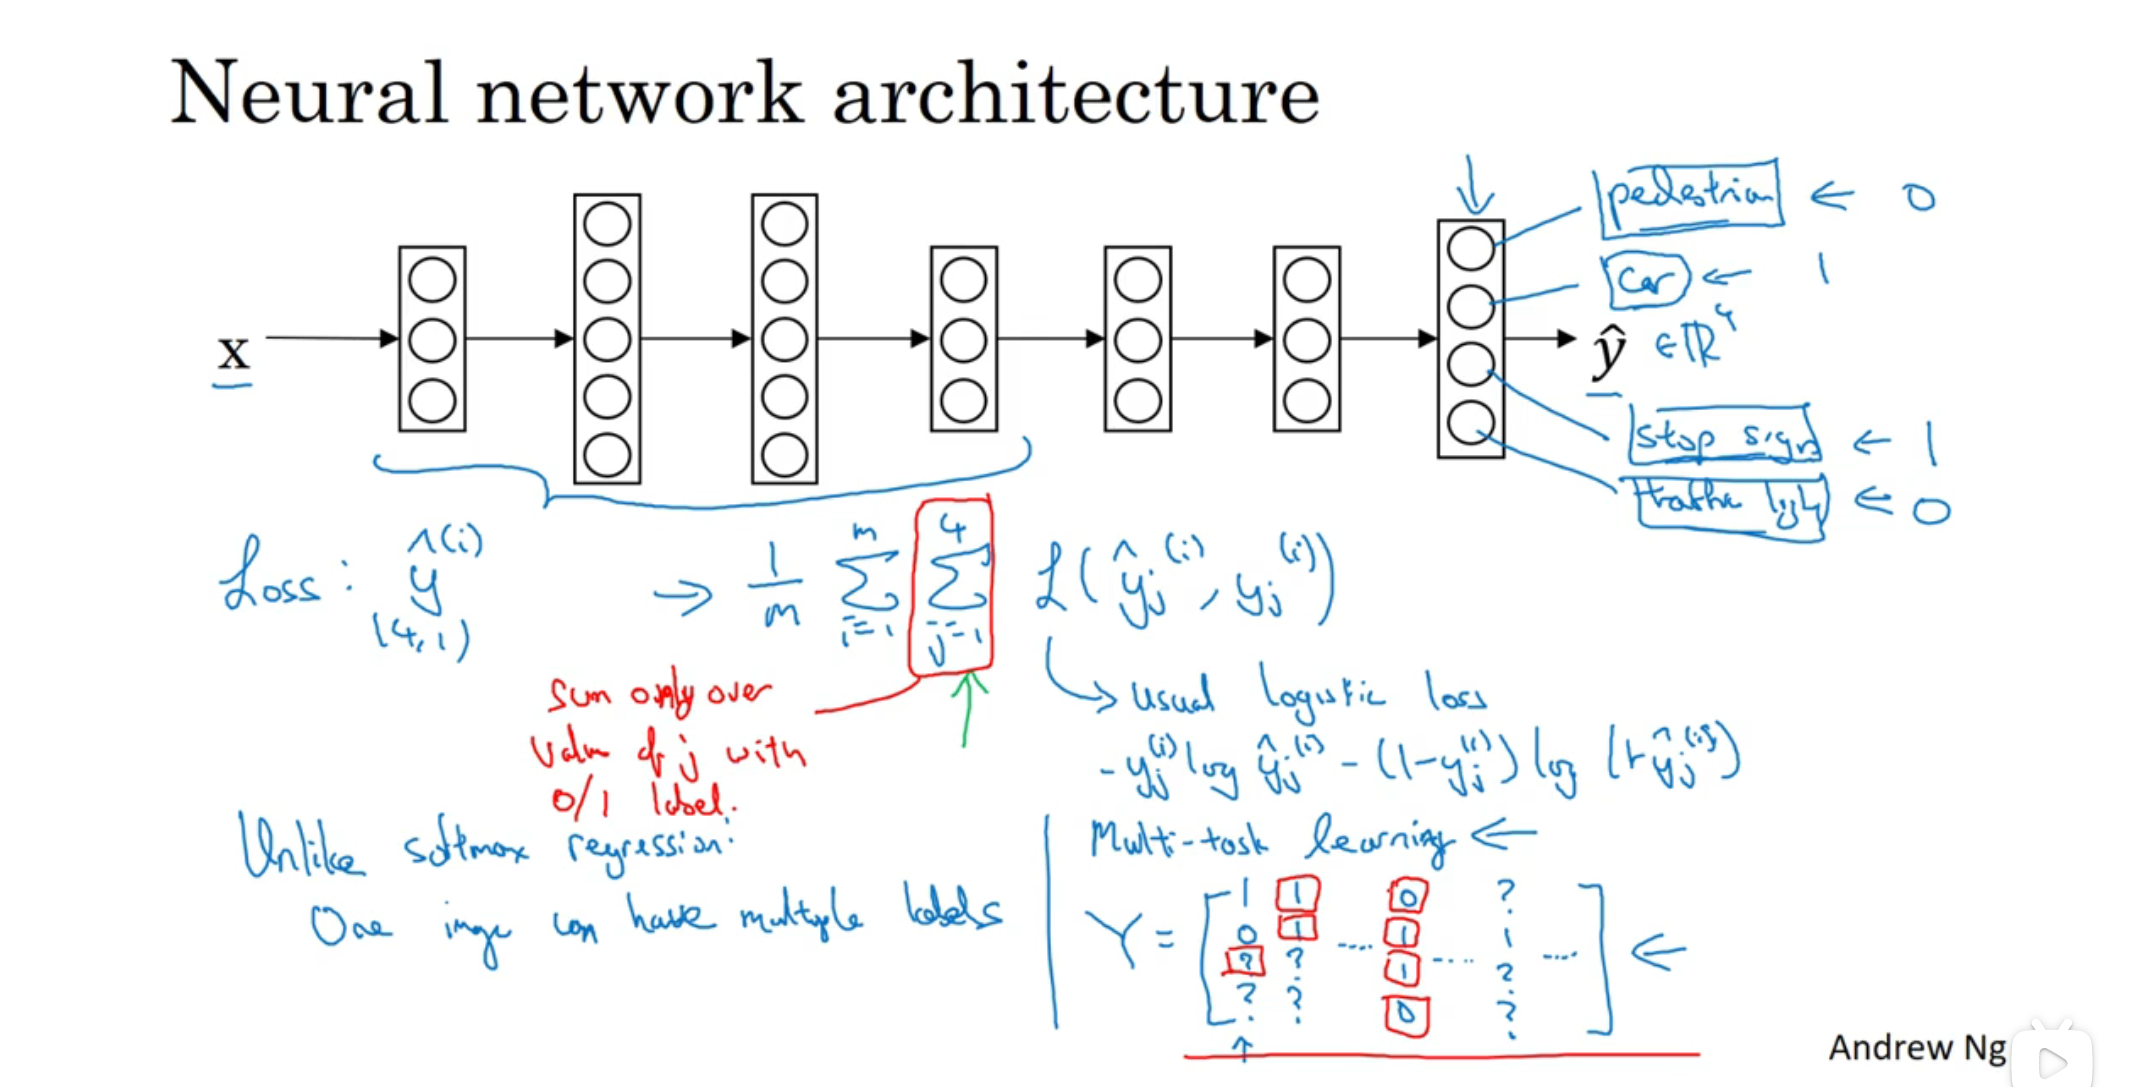 Neural network architecture
pedestrian ← 0
car ← 1
x
ŷ ∈ ℝ⁴
stop sign ← 1
traffic light ← 0
Loss: ŷ^(i) → 1/m Σ_{i=1}^{m} Σ_{j=1}^{4} L(ŷ_j^(i), y_j^(i))
(4,1)
sum only over
value of j with
0/1 label.
usual logistic loss
-y_j^(i) log ŷ_j^(i) - (1-y_j^(i)) log (1-ŷ_j^(i))
Unlike softmax regression:
One image can have multiple labels
Multi-task learning ←
1 1 0 ?
Y = 0 1 .... 1 .... 1 .... ←
? ? 1 ?
? ? 0 ?
Andrew Ng